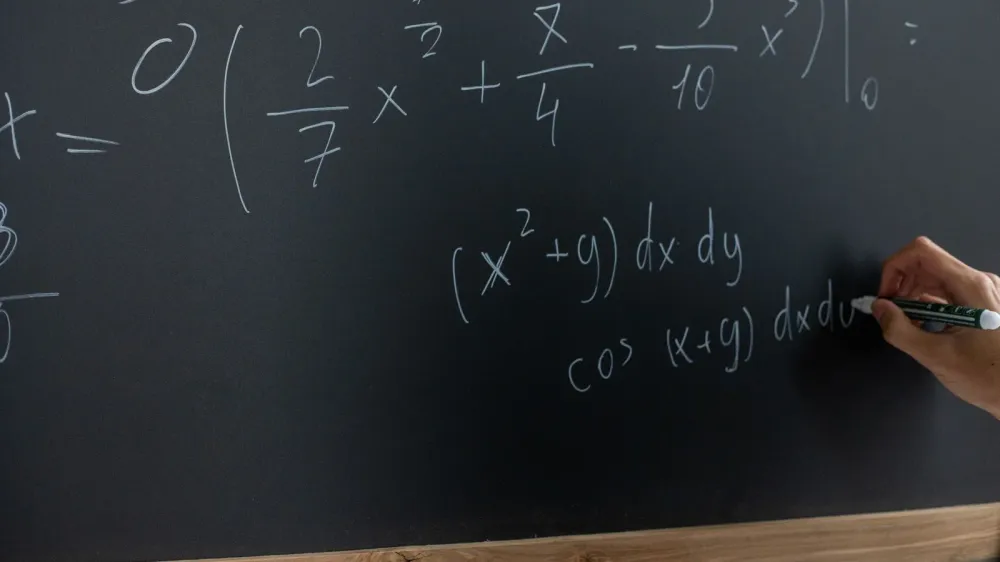 0 ( 2/7 x /2 + x/4 - /10 x ) |0 =
x =
(x² + y) dx dy
cos (x+y) dx dy